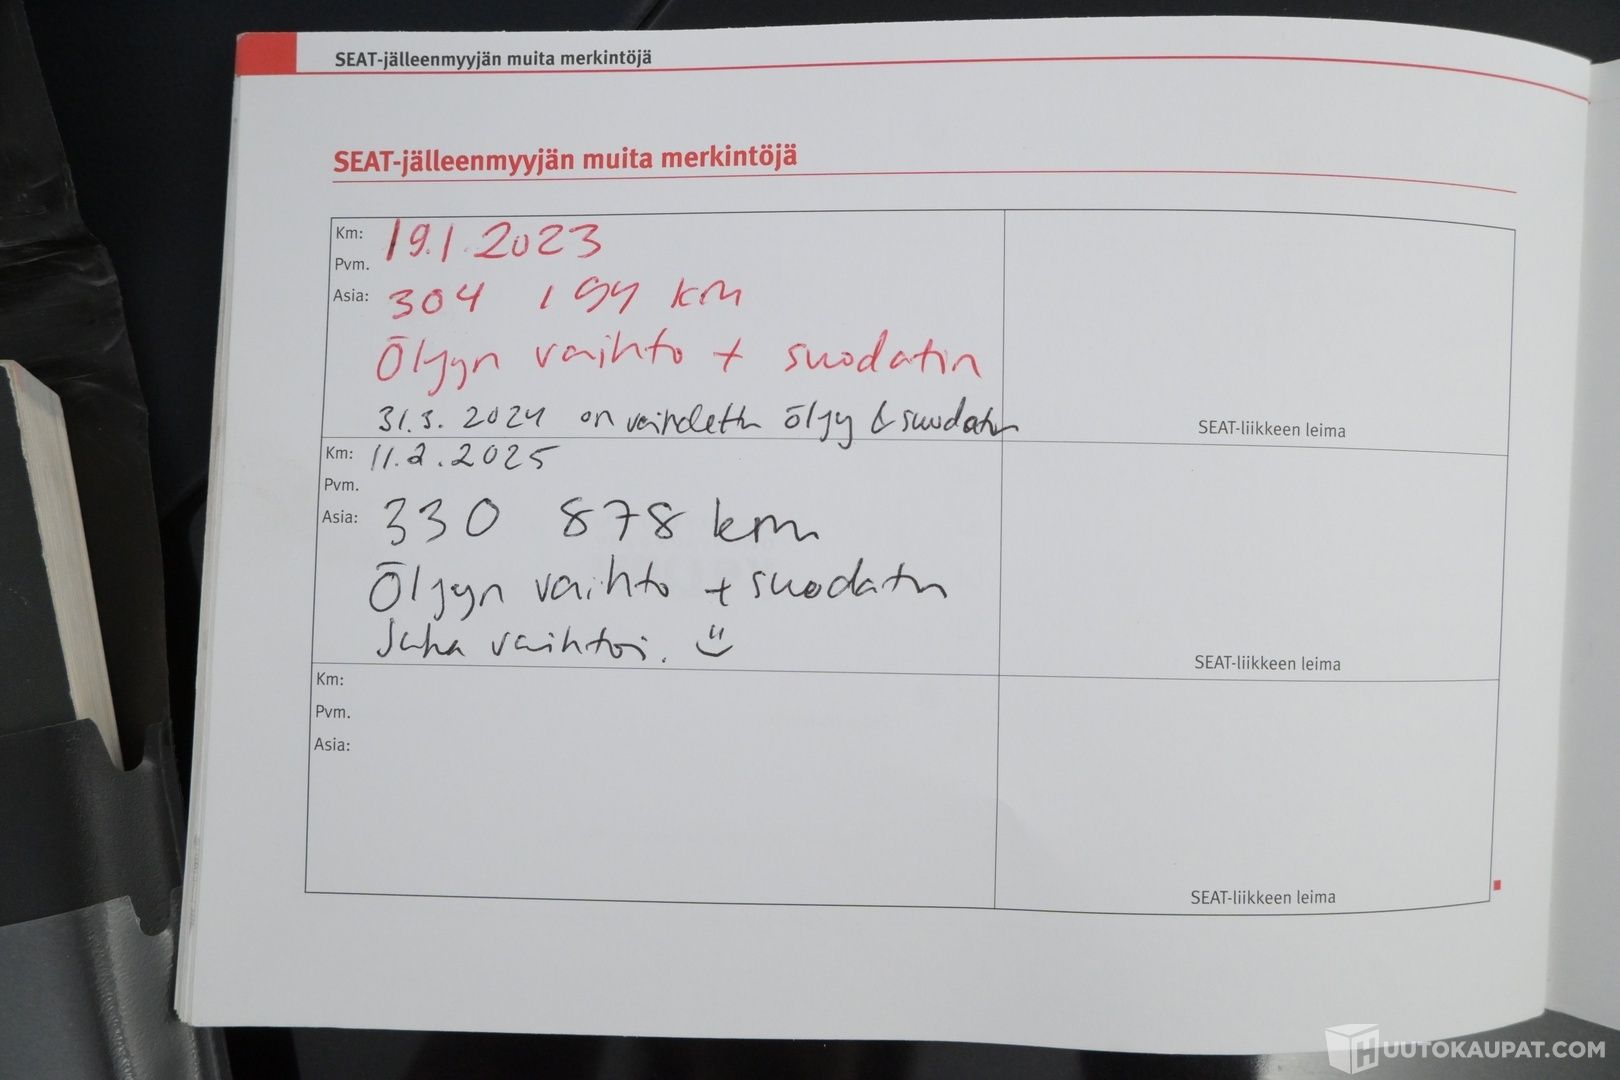 SEAT-jälleenmyyjän muita merkintöjä
SEAT-jälleenmyyjän muita merkintöjä
Km: 19.1.2023
Pvm.
Asia: 304 194 km
Öljyn vaihto + suodatin
31.3. 2024 on vaihdettu öljy & suodatin
SEAT-liikkeen leima
Km: 11.2.2025
Pvm.
Asia: 330 878 km
Öljyn vaihto + suodatin
Juha vaihtoi. :)
SEAT-liikkeen leima
Km:
Pvm.
Asia:
SEAT-liikkeen leima
HUUTOKAUPAT.COM